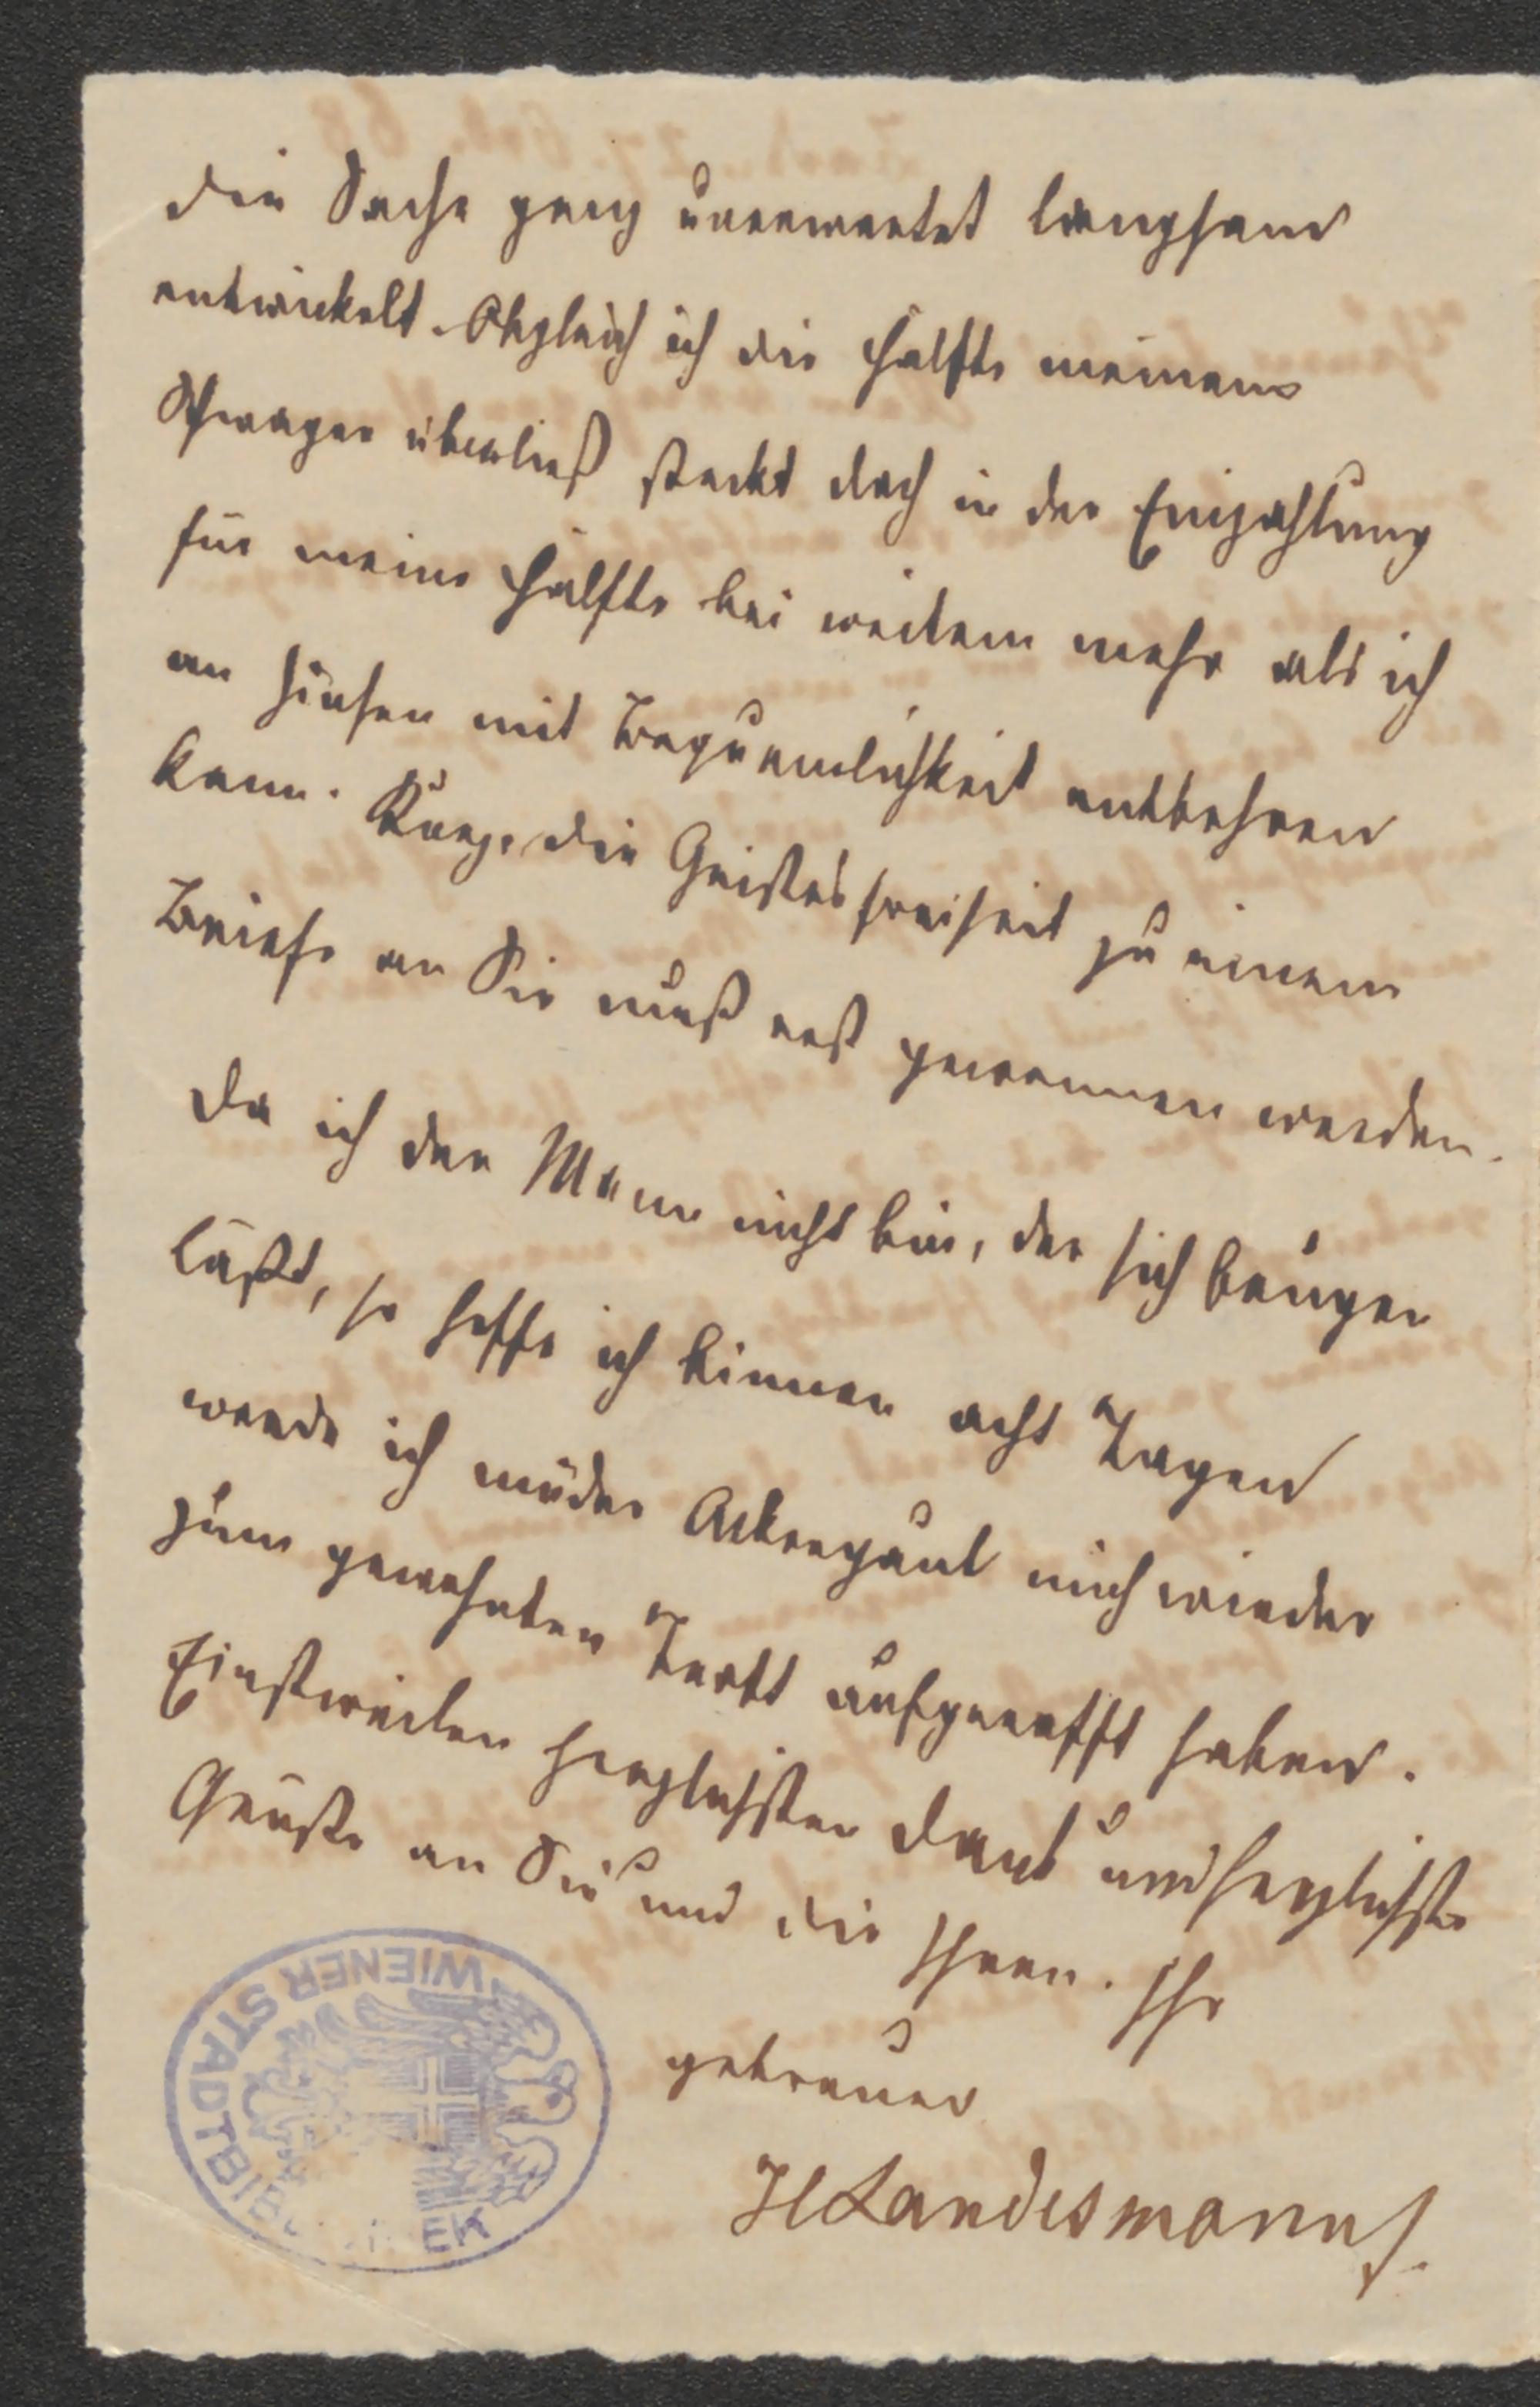 die Sache ganz unerwartet langsam
entwickelt. Obgleich ich die Hälfte meinem
Schwager überließ steckt doch in der Einzahlung
für meine Hälfte bei weitem mehr als ich
an Zinsen mit Bequemlichkeit entbehren
kann. Kurz, die Geistesfreiheit zu einem
Briefe an Sie muß erst gewonnen werden.
Da ich der Mann nicht bin, der sich beugen
läßt, so hoffe ich binnen acht Tagen
werde ich müder Ackergaul mich wieder
zum gewohnten Trott aufgerafft haben.
Einstweilen herzlichsten Dank und herzlichste
Grüße an Sie und die Ihren. Ihr
getreuer
HLandesmann
WIENER STADTBIB EK